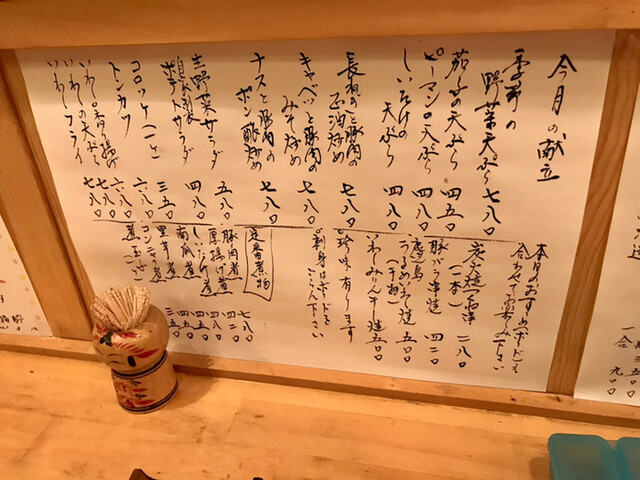 今月の献立
季節の
野菜天ぷら 七八〇
茄子の天ぷら 四五〇
ピーマンの天ぷら 四八〇
しいたけの
天ぷら 四八〇
長ねぎと豚肉の
正油炒め 七八〇
キャベツと豚肉の
みそ炒め 七八〇
ナスと豚肉の
ポン酢炒め 七八〇
生野菜サラダ 五八〇
ポテトサラダ 四八〇
コロッケ(一ケ) 三五〇
トンカツ 六八〇
いわしの天ぷら 六八〇
いわしフライ 七八〇
本日のおすすめボードも
合わせてお楽しみ下さい
(一本) 二八〇
豚バラ串焼 四二〇
うるめいわし焼 五〇〇
いわしみりん干し焼 五〇〇
○珍味有ります
○刺身はボードを
ごらん下さい
定番煮物
豚肉煮 七八〇
厚揚げ煮 四二〇
しいたけ煮 四八〇
南瓜煮 四五〇
里芋煮 四五〇
一合 九〇〇